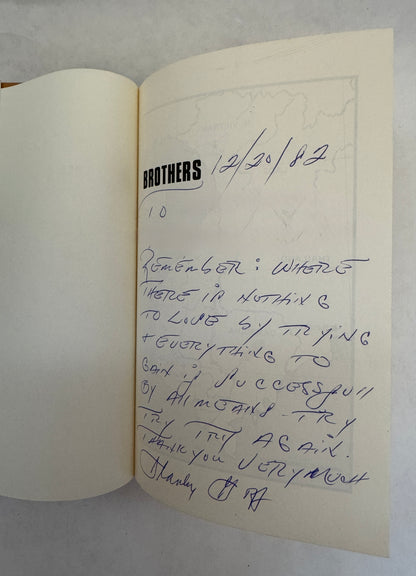 BROTHERS 12/20/82
TO
REMEMBER: WHERE
THERE IS NOTHING
TO LOSE BY TRYING
+ EVERYTHING TO
GAIN IF SUCCESSFULL
BY All MEANS - TRY
TRY TRY AGAIN.
THANK YOU VERY MUCH
Stanley Goff